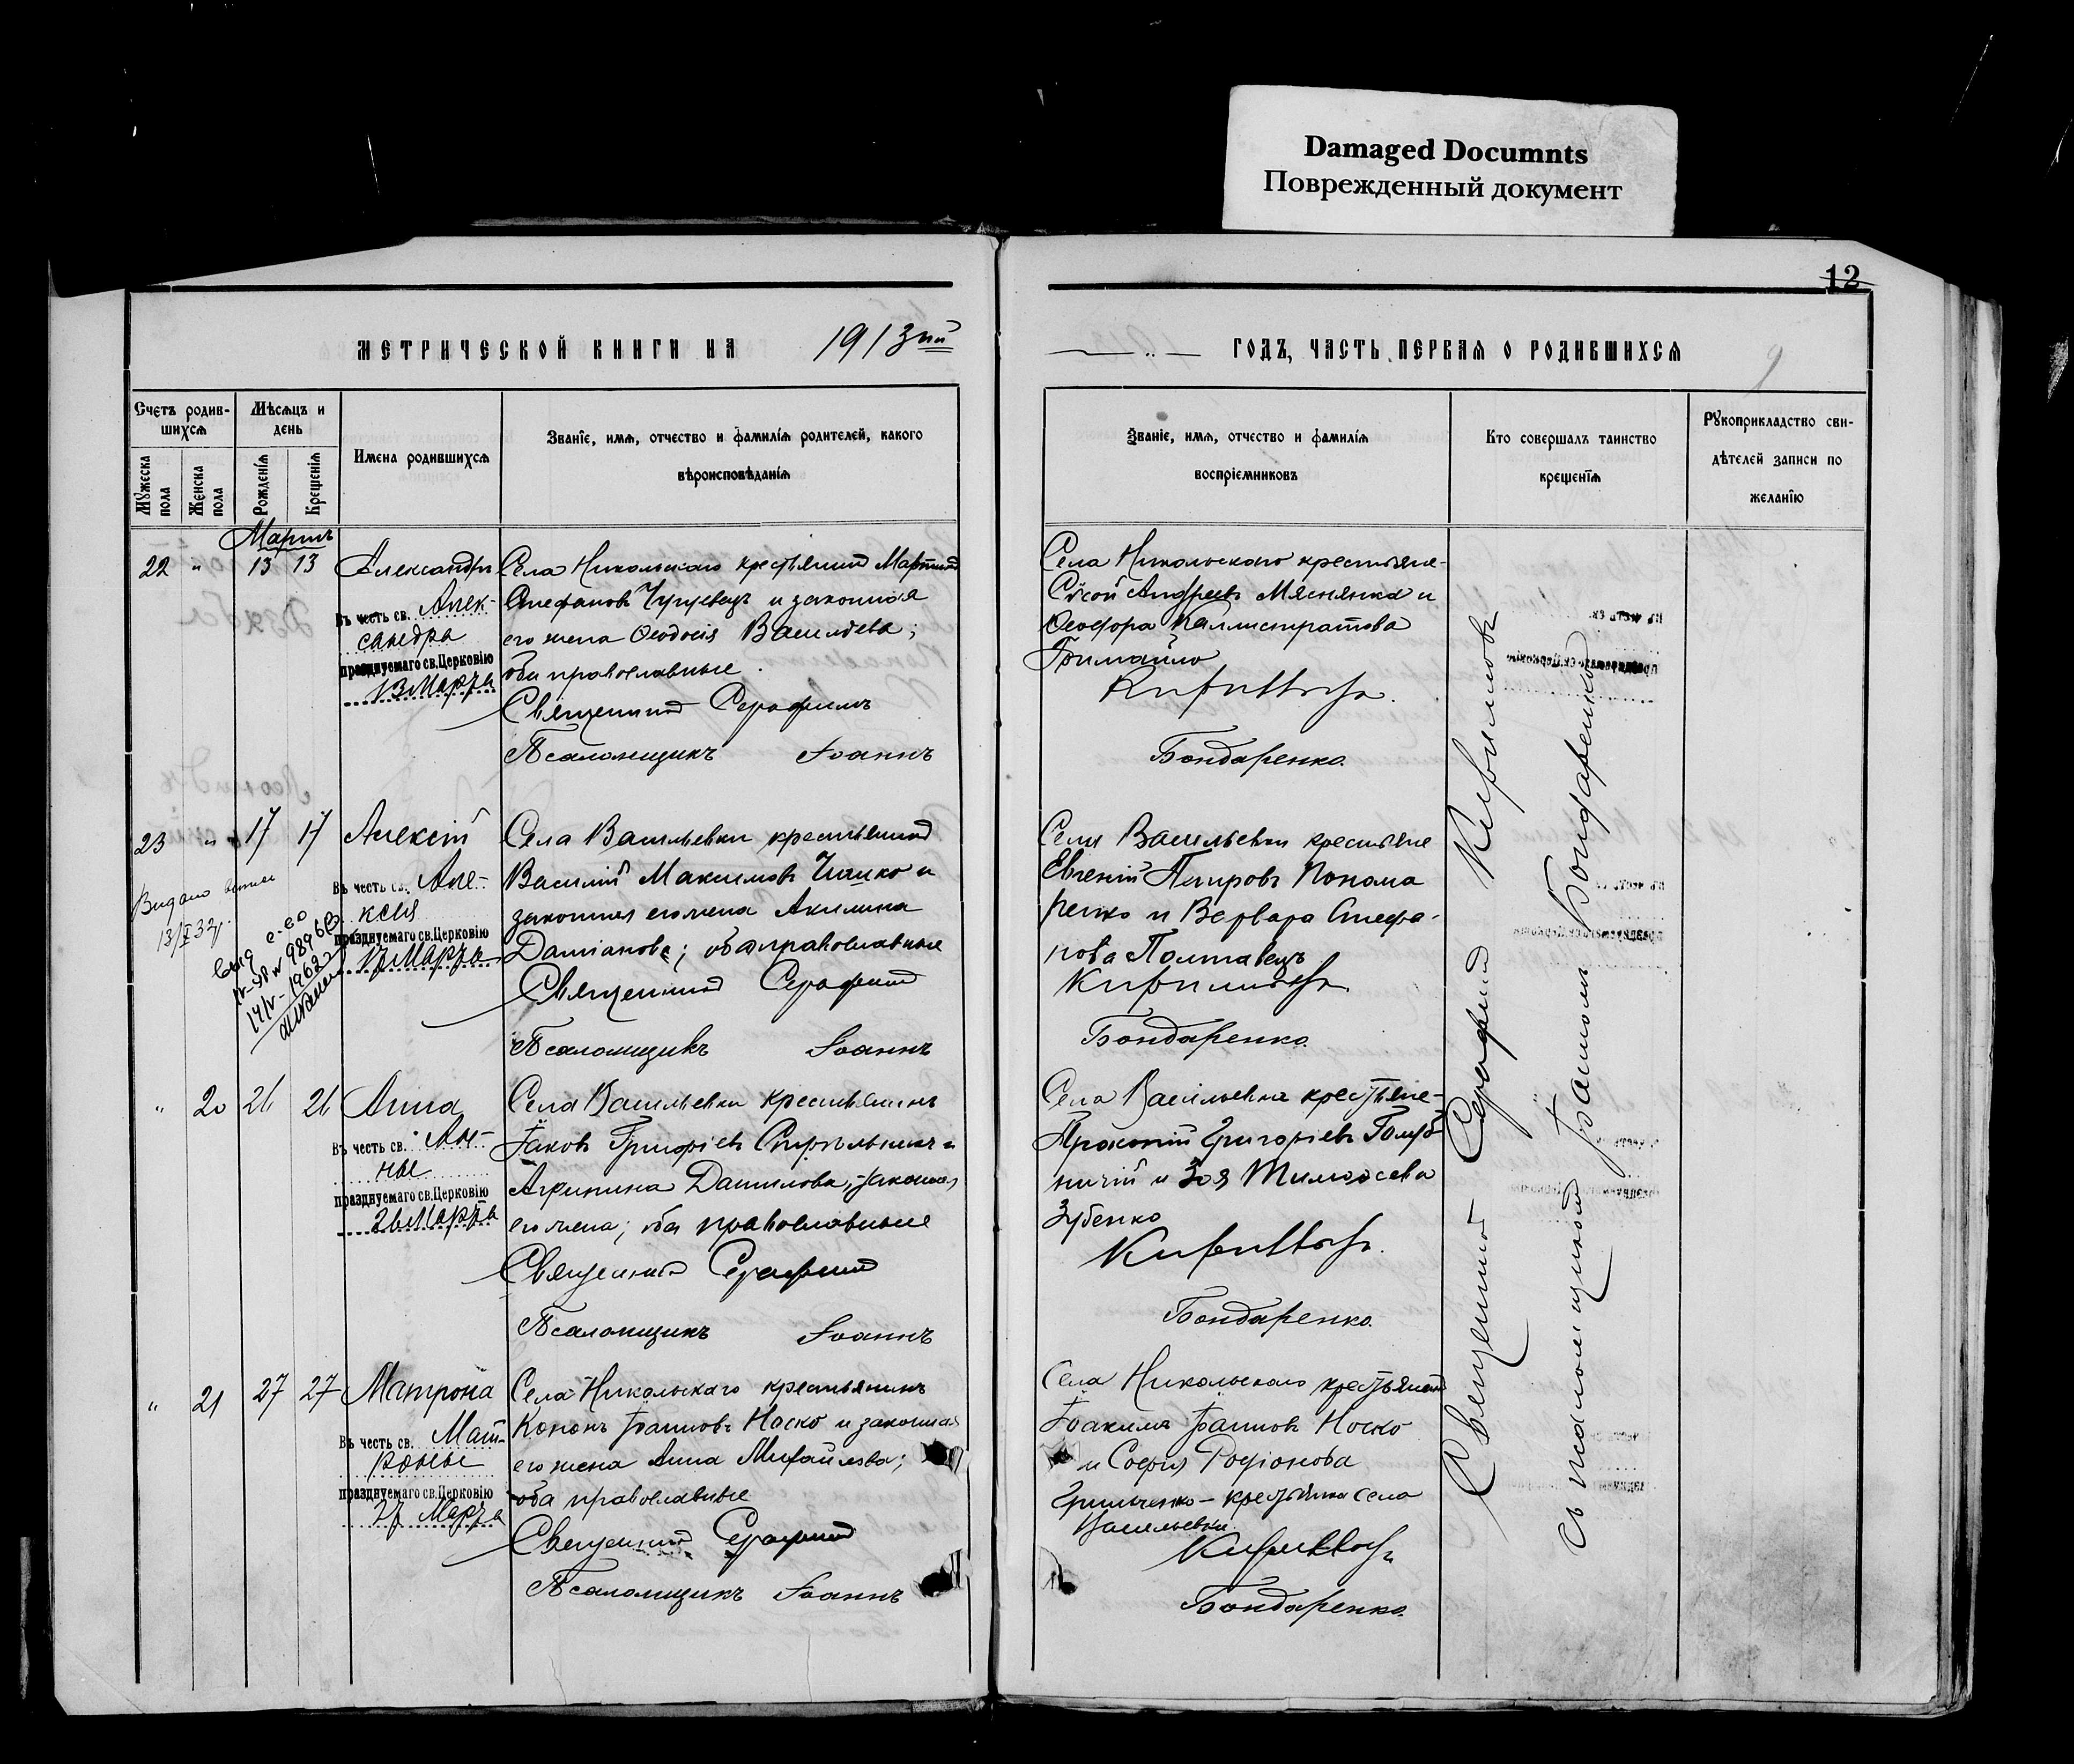 Damaged Documnts
Поврежденный документ
12
МЕТРИЧЕСКОЙ КНИГИ НА 1913й
ГОДЪ, ЧАСТЬ ПЕРВАЯ О РОДИВШИХСЯ
9
Счетъ родив-
шихся
Мужеска
пола
Женска
пола
Мѣсяцъ и
день
Рожденія
Крещенія
Имена родившихся
Званіе, имя, отчество и фамилія родителей, какого
вѣроисповѣданія
Званіе, имя, отчество и фамилія
воспріемниковъ
Кто совершалъ таинство
крещенія
Рукоприкладство сви-
дѣтелей записи по
желанію
Мартъ
22 " 13 13
Александръ
Въ честь св. Алек-
сандра
празднуемаго св. Церковію
13 Марта
Села Никольскаго крестьянинъ Мартинъ
Стефановъ и законная
его жена Ѳеодосія Васильева;
оба православные.
Священникъ Серафимъ
Псаломщикъ Іоаннъ
Села Никольскаго крестьяне
Сѵсой Андреевъ Мяснянка и
Ѳеодора Каллистратова
Гримайло
Кириллов
Бондаренко.
23 " 17 17
Алексій
Въ честь св. Але-
ксія
празднуемаго св. Церковію
17 Марта
Видано
Села Васильевки крестьянинъ
Василій Максимовъ Чишко и
законная его жена Акилина
Даміанова; оба православные
Священникъ Серафимъ
Псаломщикъ Іоаннъ
Села Васильевки крестьяне
Евгеній Петровъ Понома
ренко и Варвара Стефа-
нова Полтавецъ
Кириллов
Бондаренко.
" 20 26 26
Анна
Въ честь св. Ан-
ны
празднуемаго св. Церковію
26 Марта
Села Васильевки крестьянинъ
Іаковъ Григоріевъ и
Агрипина Данилова, законная
его жена; оба православные
Священникъ Серафимъ
Псаломщикъ Іоаннъ
Села Васильевки крестьяне
Григоріевъ
и Зоя Тимоѳеева
Зубенко
Кириллов
Бондаренко.
" 21 27 27
Матрона
Въ честь св. Мат-
роны
празднуемаго св. Церковію
27 Марта
Села Никольскаго крестьянинъ
Кононъ Іоанновъ Носко и законная
его жена Анна Михайлова;
оба православные
Священникъ Серафимъ
Псаломщикъ Іоаннъ
Села Никольскаго крестьянинъ
Іоакимъ Іоанновъ Носко
и Софія Родіонова
Гринченко - крестьянка села
Васильевки.
Кириллов
Бондаренко.
Священникъ Серафимъ Кирилловъ
съ псаломщикомъ Іоанномъ Бондаренко